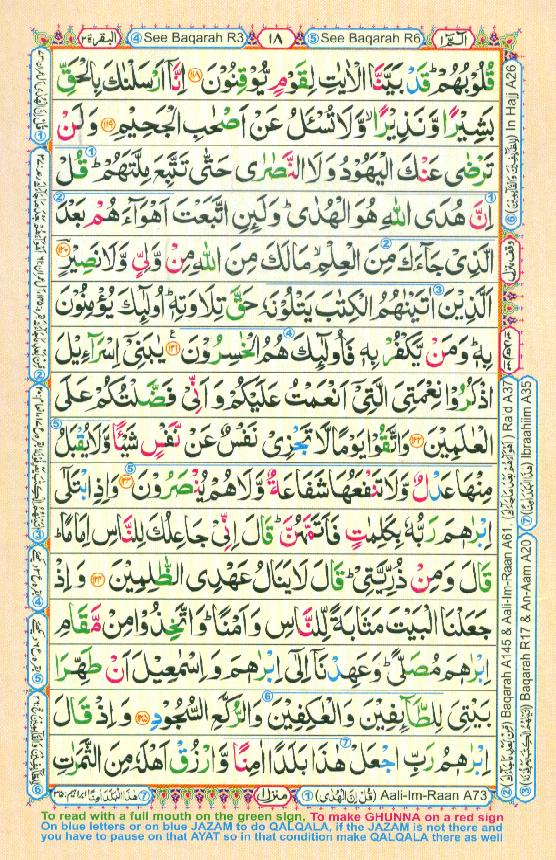 البقرة ٢
④ See Baqarah R3
١٨
⑤ See Baqarah R6
الٓمّٓ ١
قُلُوْبُهُمْ ؕ قَدْ بَيَّنَّا الْاٰيٰتِ لِقَوْمٍ يُّوْقِنُوْنَ ﴿۱۱۸﴾ اِنَّاۤ اَرْسَلْنٰكَ بِالْحَقِّ
بَشِيْرًا وَّنَذِيْرًا ۙ وَّلَا تُسْـَٔلُ عَنْ اَصْحٰبِ الْجَحِيْمِ ﴿۱۱۹﴾ وَلَنْ
تَرْضٰى عَنْكَ الْيَهُوْدُ وَلَا النَّصٰرٰى حَتّٰى تَتَّبِعَ مِلَّتَهُمْ ؕ قُلْ
اِنَّ هُدَى اللّٰهِ هُوَ الْهُدٰى ؕ وَلَئِنِ اتَّبَعْتَ اَهْوَآءَهُمْ بَعْدَ
الَّذِىْ جَآءَكَ مِنَ الْعِلْمِ ۙ مَا لَكَ مِنَ اللّٰهِ مِنْ وَّلِىٍّ وَّلَا نَصِيْرٍ ﴿۱۲۰﴾
اَلَّذِيْنَ اٰتَيْنٰهُمُ الْكِتٰبَ يَتْلُوْنَهٗ حَقَّ تِلَاوَتِهٖ ؕ اُولٰٓئِكَ يُؤْمِنُوْنَ
بِهٖ ؕ وَمَنْ يَّكْفُرْ بِهٖ فَاُولٰٓئِكَ هُمُ الْخٰسِرُوْنَ ﴿۱۲۱﴾ يٰبَنِىْۤ اِسْرَآءِيْلَ
اذْكُرُوْا نِعْمَتِىَ الَّتِىْۤ اَنْعَمْتُ عَلَيْكُمْ وَاَنِّىْ فَضَّلْتُكُمْ عَلَى
الْعٰلَمِيْنَ ﴿۱۲۲﴾ وَاتَّقُوْا يَوْمًا لَّا تَجْزِىْ نَفْسٌ عَنْ نَّفْسٍ شَيْـًٔا وَّلَا يُقْبَلُ
مِنْهَا عَدْلٌ وَّلَا تَنْفَعُهَا شَفَاعَةٌ وَّلَا هُمْ يُنْصَرُوْنَ ﴿۱۲۳﴾ وَاِذِ ابْتَلٰٓى
اِبْرٰهٖمَ رَبُّهٗ بِكَلِمٰتٍ فَاَتَمَّهُنَّ ؕ قَالَ اِنِّىْ جَاعِلُكَ لِلنَّاسِ اِمَامًا ؕ
قَالَ وَمِنْ ذُرِّيَّتِىْ ؕ قَالَ لَا يَنَالُ عَهْدِى الظّٰلِمِيْنَ ﴿۱۲۴﴾ وَاِذْ
جَعَلْنَا الْبَيْتَ مَثَابَةً لِّلنَّاسِ وَاَمْنًا ؕ وَاتَّخِذُوْا مِنْ مَّقَامِ
اِبْرٰهٖمَ مُصَلًّى ؕ وَعَهِدْنَاۤ اِلٰٓى اِبْرٰهٖمَ وَاِسْمٰعِيْلَ اَنْ طَهِّرَا
بَيْتِىَ لِلطَّآئِفِيْنَ وَالْعٰكِفِيْنَ وَالرُّكَّعِ السُّجُوْدِ ﴿۱۲۵﴾ وَاِذْ قَالَ
اِبْرٰهٖمُ رَبِّ اجْعَلْ هٰذَا بَلَدًا اٰمِنًا وَّارْزُقْ اَهْلَهٗ مِنَ الثَّمَرٰتِ
⑥ In Hajj A26
Baqarah A145 & Aali-Im-Raan A61, Ra'd A37
Baqarah R17 & An-Aam A20
⑦ Ibraahiim A35
منزل ١
① Aali-Im-Raan A73
To read with a full mouth on the green sign, To make GHUNNA on a red sign
On blue letters or on blue JAZAM to do QALQALA, if the JAZAM is not there and
you have to pause on that AYAT so in that condition make QALQALA there as well